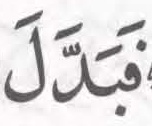 فَبَدَّلَ